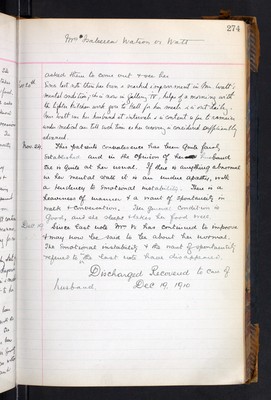 274
Mrs Francesca Watson or Watt
asked them to come out & see her.
Nov 20th Since last note there has been a marked improvement in Mrs Watt's
mental condition; she now is putting on, helps of a morning with
the lighter kitchen work, goes to help for her meals & is out daily.
Mrs Watt sees her husband at intervals & is content to go & remain
under medical care till such time as her recovery is considered sufficiently
advanced.
Nov. 24. This patients convalescence has been quite fairly
established and in the opinion of her husband
she is quite at her normal. If there is anything abnormal
in her mental state it is an undue apathy, with
a tendency to emotional instability. There is a
heaviness of manner & a want of spontaneity in
walk & conversation. Her general condition is
good, and she sleeps & takes her food well.
Dec 19 Since last note Mrs W. has continued to improve
& may now be said to be about her normal.
The emotional instability & the want of spontaneity
referred to in the last note have disappeared.
Discharged Recovered to care of
husband. Dec 19 1910